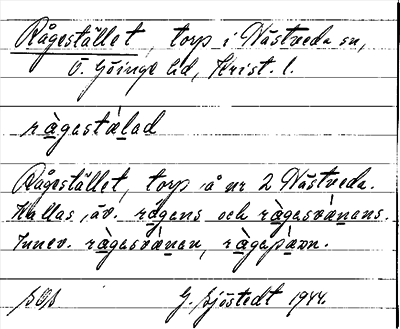 Rågestället, torp i Nästveda sn,
Ö. Göinge hd, Krist. l.
rågestälad
Rågestället, torp å nr 2 Nästveda.
Kallas äv. rågens och rågasvånens.
Innev. rågasvånen, rågapåvn.
G. Sjöstedt 1944.